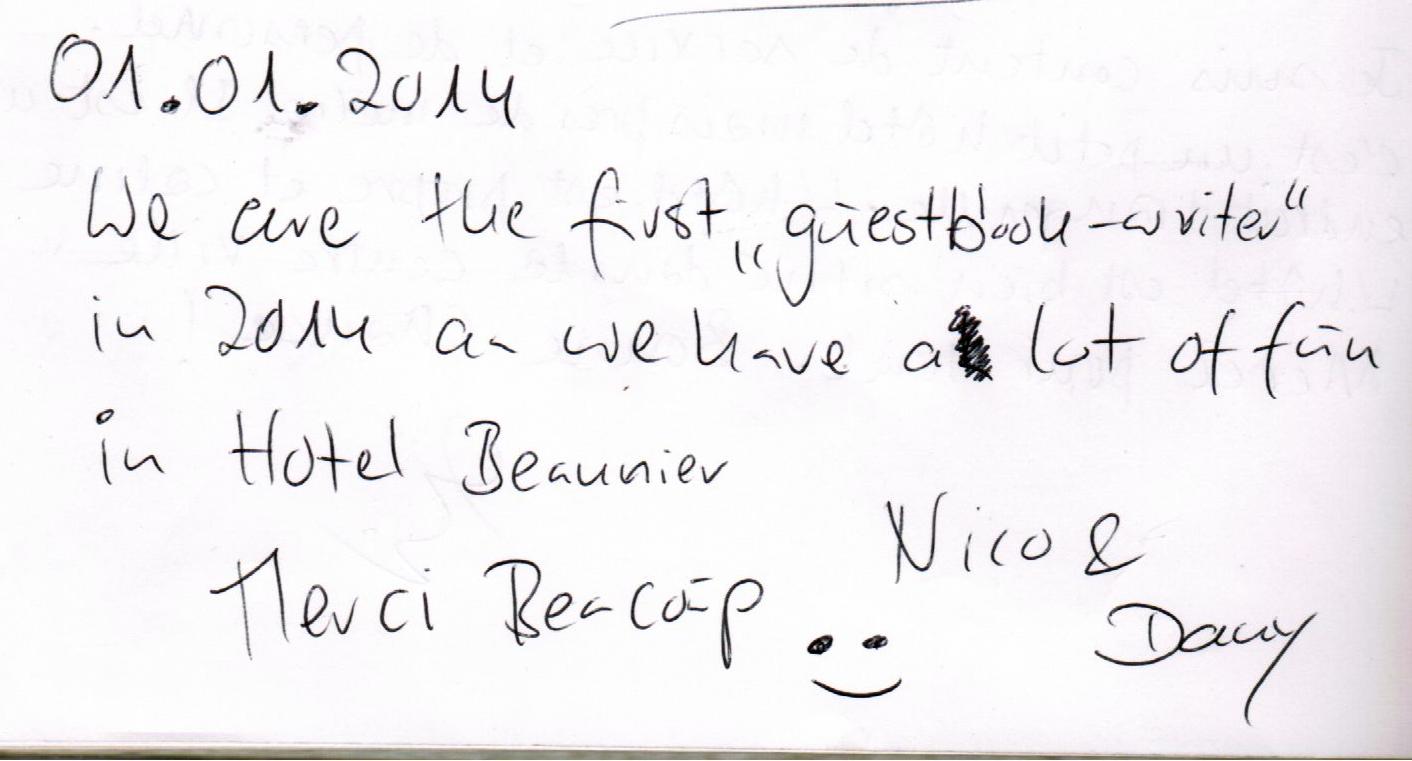 01.01.2014
We are the first „guestbook-writer“
in 2014 an we have a lot of fun
in Hotel Beaunier
Merci Beacoup
Nico &
Dany